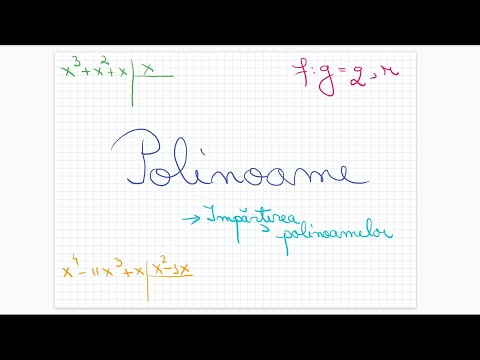 x³+x²+x | x
f:g=q,r
Polinoame
→ Împărțirea
polinoamelor
x⁴-11x³+x | x²-3x